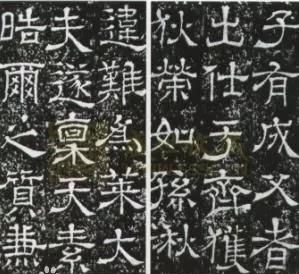 子有成父者
出仕于齊獲
狄榮如孫秋
違難為萊大
夫遂稟天素
皓爾之質兼